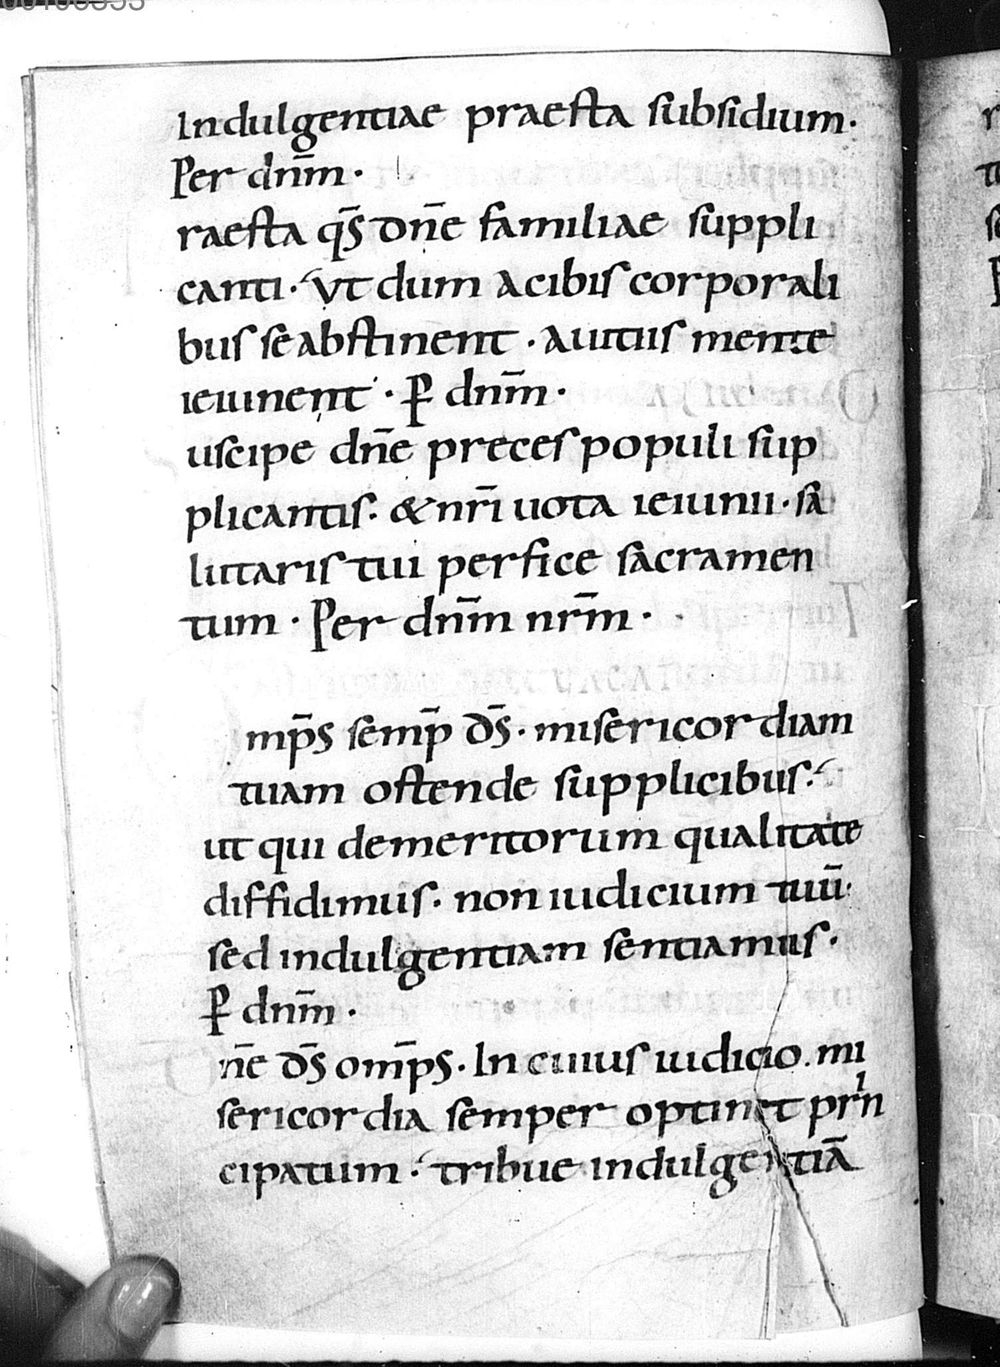 Indulgentiae praesta subsidium.
Per dnm̄.
raesta qs̄ dnē familiae suppli
canti. ut dum a cibis corporali
bus se abstinent. a uitiis mente
ieiunent. P̄ dnm̄.
uscipe dnē preces populi sup
plicantis. & nrī uota ieiunii. sa
luttaris tui perfice sacramen
tum. Per dnm̄ nrm̄.
mp̄s semp̄ ds̄. misericordiam
tuam ostende supplicibus.
ut qui demeritorum qualitate
diffidimus. non iudicium tuū.
sed indulgentiam sentiamus.
P̄ dnm̄.
nē ds̄ omp̄s. In cuius iudicio. mi
sericordia semper optinet prin
cipatum. tribue indulgentiā